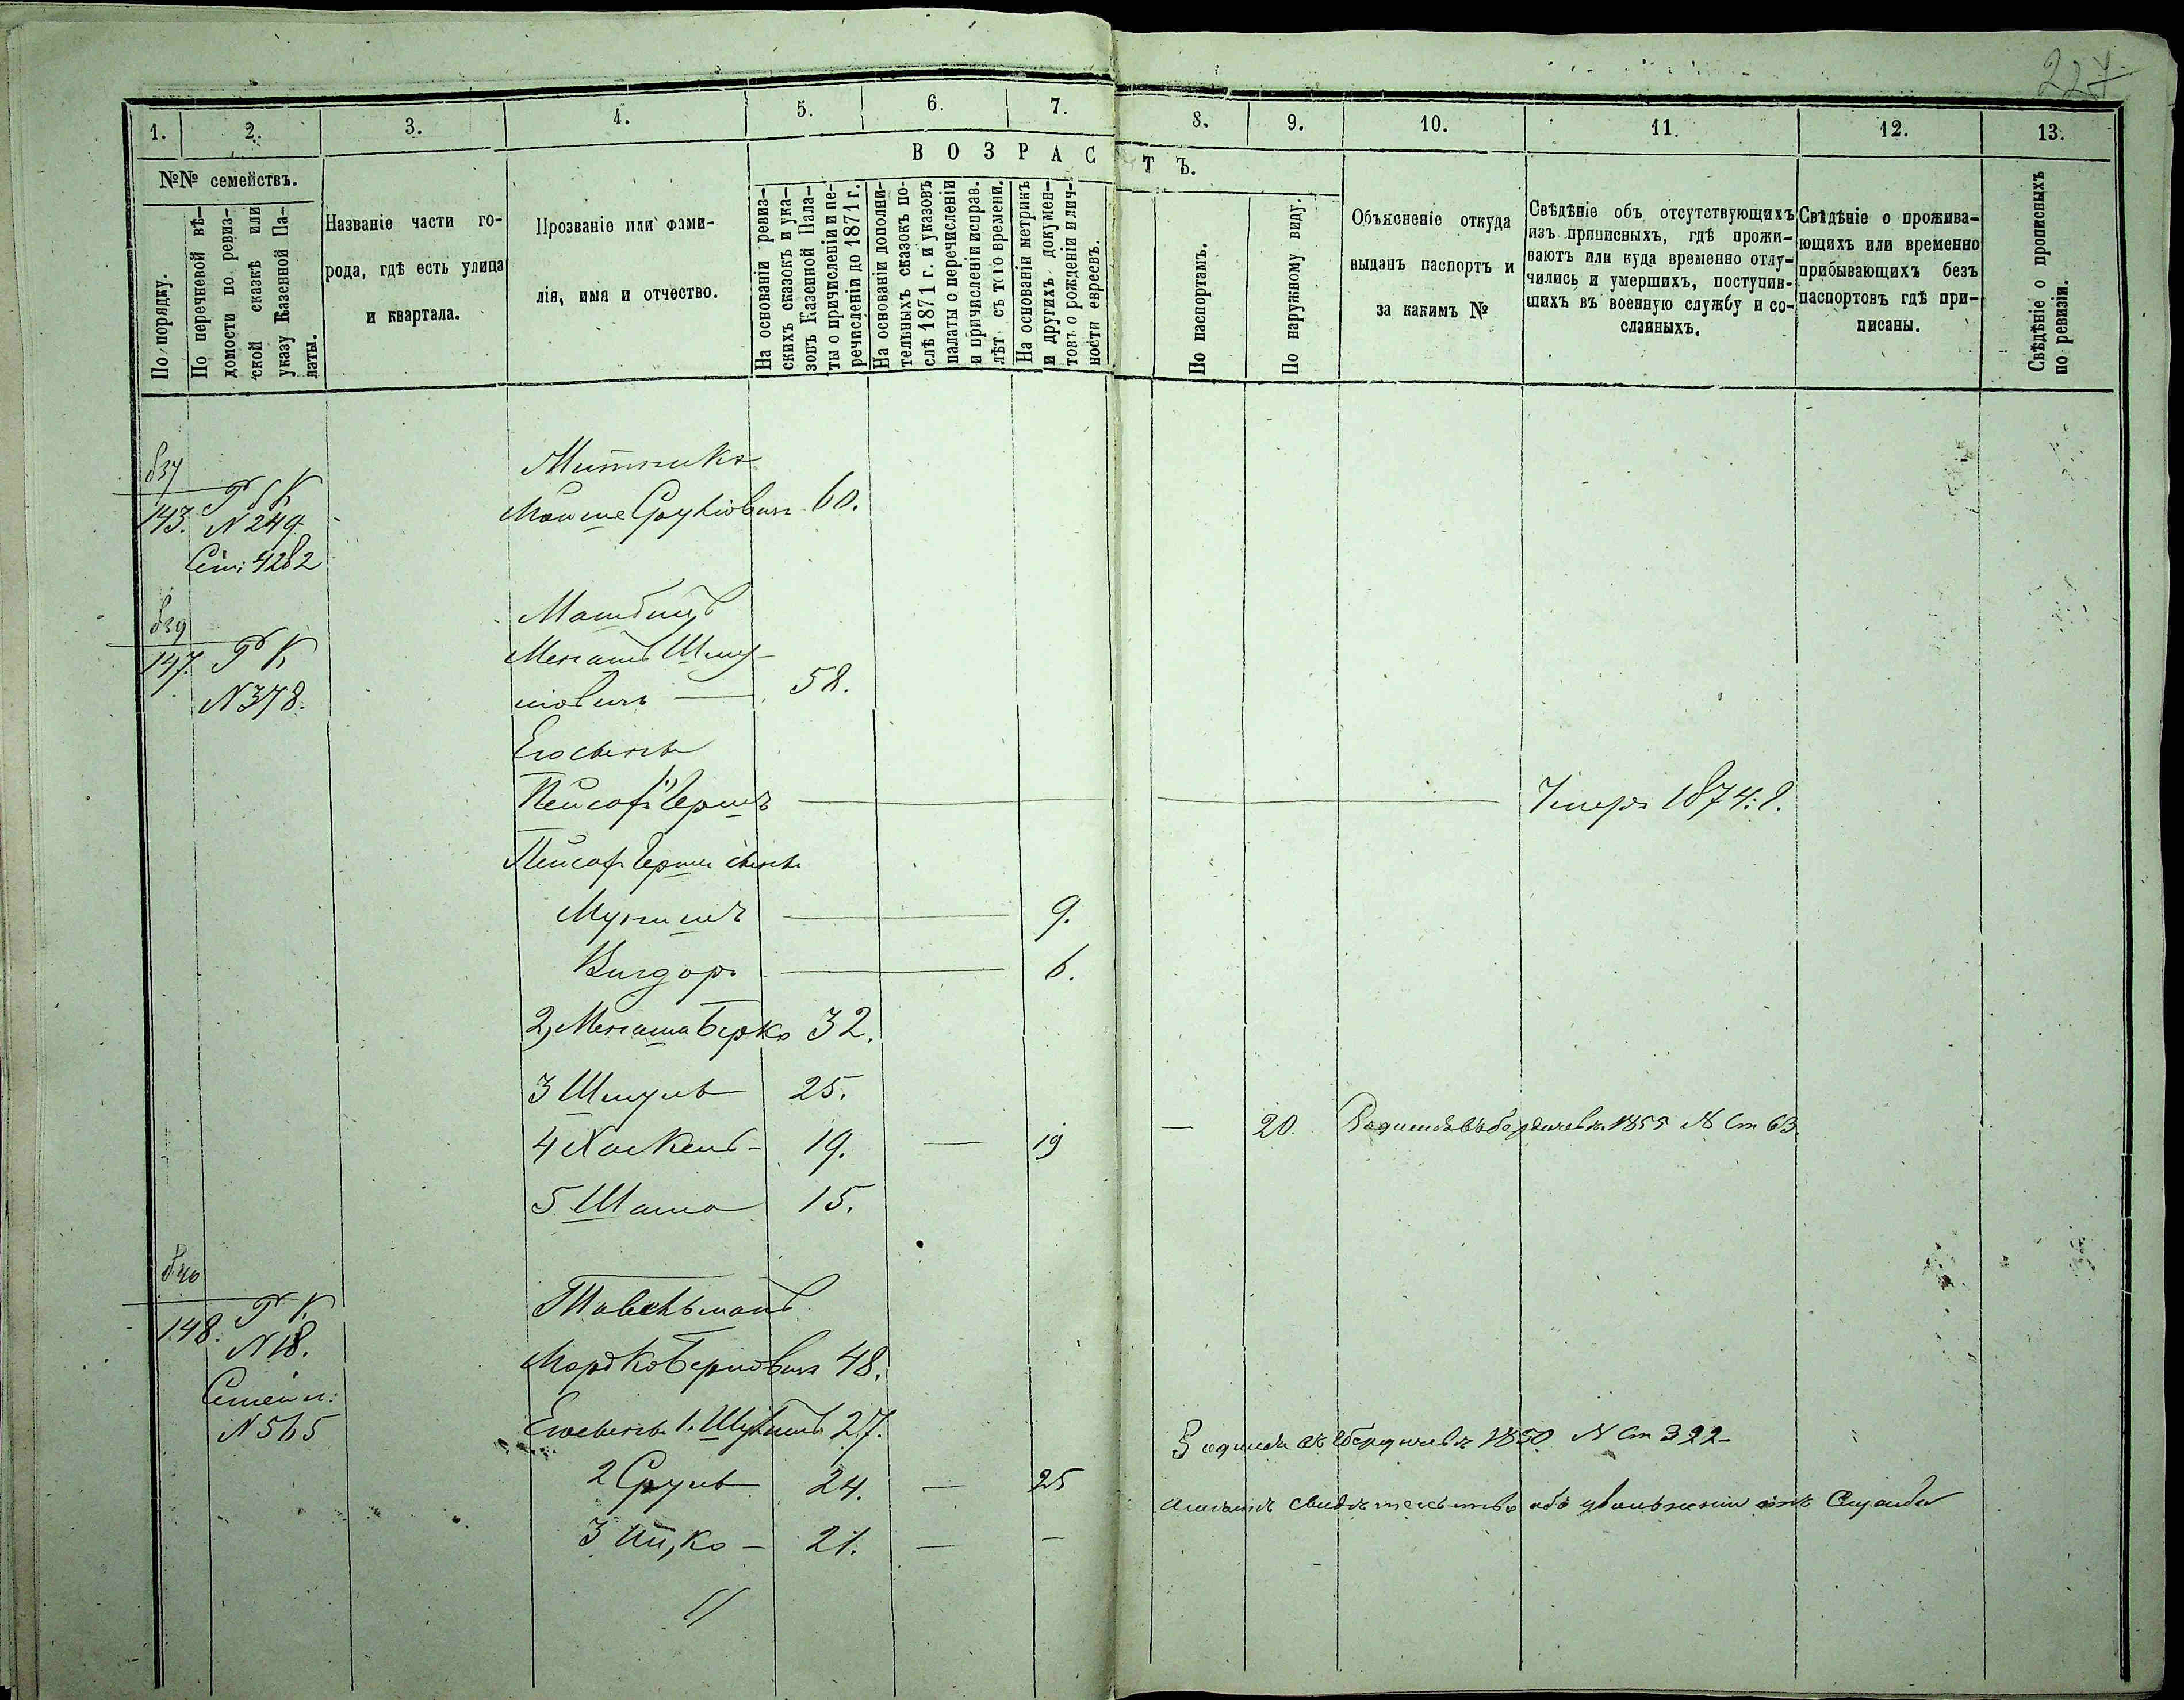 227
1. 2. 3. 4. 5. 6. 7. 8. 9. 10. 11. 12. 13.
№№ семействъ.
По порядку.
По перечневой вѣ-
домости по ревиз-
ской сказкѣ или
указу Казенной Па-
латы.
Названіе части го-
рода, гдѣ есть улица
и квартала.
Прозваніе или фами-
лія, имя и отчество.
ВОЗРАСТЪ.
На основаніи ревиз-
скихъ сказокъ и ука-
зовъ Казенной Пала-
ты о причисленіи и пе-
речисленіи до 1871 г.
На основаніи дополни-
тельныхъ сказокъ по-
слѣ 1871 г. и указовъ
палаты о перечисленіи
и причисленіи исправ.
лѣт съ того времени.
На основаніи метрикъ
и другихъ докумен-
товъ о рожденіи и лич-
ности евреевъ.
По паспортамъ.
По наружному виду.
Объясненіе откуда
выданъ паспортъ и
за какимъ №
Свѣдѣніе объ отсутствующихъ
изъ приписныхъ, гдѣ прожи-
ваютъ или куда временно отлу-
чились и умершихъ, поступив-
шихъ въ военную службу и со-
сланныхъ.
Свѣдѣніе о прожива-
ющихъ или временно
прибывающихъ безъ
паспортовъ гдѣ при-
писаны.
Свѣдѣніе о прописныхъ
по ревизіи.
837
143. Р К
N 249.
4282
Митникъ
Мошше Срулiовичъ 60.
839
147. Р К
N 378.
Менашъ Шму-
ліовичъ — 58.
Его сынъ
Пейсахъ Гершъ — Умеръ 1874: г.
Пейсахъ Герша сынъ
— 9.
Вигдоръ — 6.
2, Менаша Берко 32.
3 Шмуль 25.
4 Хаскель - 19. — 19 — 20. Родился въ Бердичевѣ 1855 N Ст 63.
5 Шаша 15.
840
148. Р К
N 18.
Семейн:
N 565
Мордко Берковичъ 48.
Его сынъ 1. 27.
2 Сруль 24. — 25 Родился въ Бердичевѣ 1850 N Ст 322
3 Ицко - 21. — — свидѣтельство объ увольненіи отъ Службы